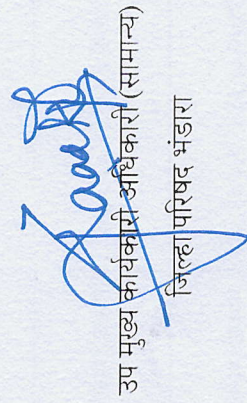 उप मुख्य कार्यकारी अधिकारी (सामान्य)
जिल्हा परिषद भंडारा